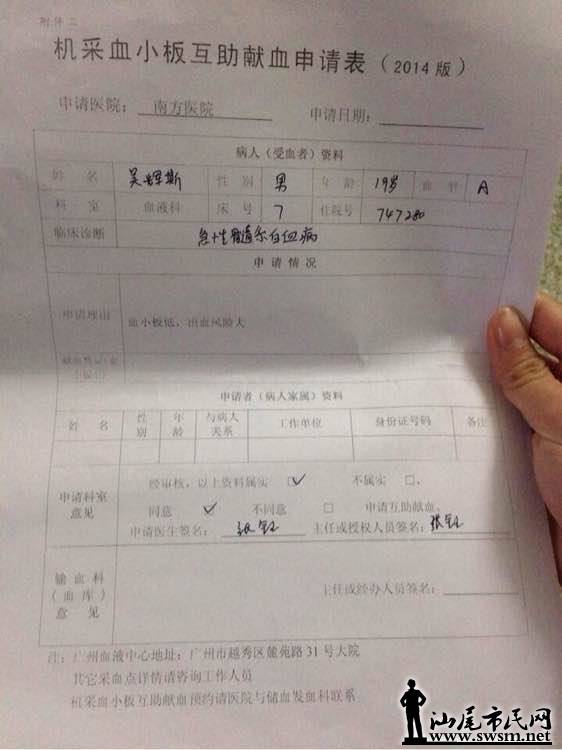 附件二
机采血小板互助献血申请表（2014 版）
申请医院： 南方医院 申请日期：
病人（受血者）资料
姓 名 吴辉斯 性 别 男 年 龄 19岁 血 型 A
科 室 血液科 床 号 7 住院号 747280
临床诊断 急性髓道系白血病
申 请 情 况
申请理由 血小板低，出血风险大
申请者（病人家属）资料
姓 名 性别 年龄 与病人关系 工作单位 身份证号码 备注
申请科室意见
经审核，以上资料属实 □✓ 不属实 □、
同意 ✓ 不同意 □、 申请互助献血。
申请医生签名： 张钰 主任或授权人员签名：张钰
输血科（血库）意见
主任或经办人员签名：
注：广州血液中心地址：广州市越秀区麓苑路 31 号大院
其它采血点详情请咨询工作人员
机采血小板互助献血预约请医院与储血发血科联系
汕尾市民网
www.swsm.net